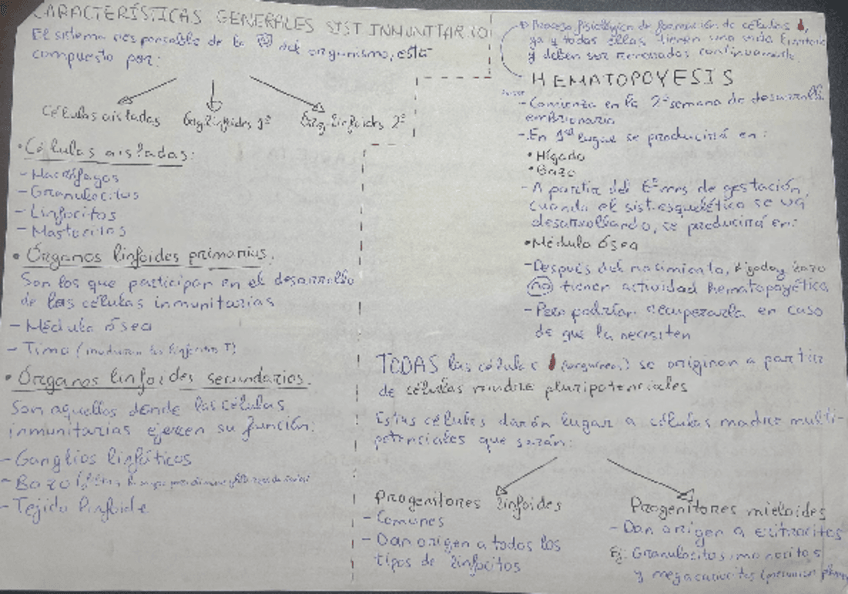 CARACTERÍSTICAS GENERALES SIST INMUNITARIO
El sistema responsable de la del organismo, está
compuesto por:
Células aisladas Órg. linfoides 1º Órg. linfoides 2º
• Células aisladas:
- Macrófagos
- Granulocitos
- Linfocitos
- Mastocitos
• Órganos linfoides primarios.
Son los que participan en el desarrollo
de las células inmunitarias
- Médula ósea
- Timo (maduran los linfocitos T)
• Órganos linfoides secundarios.
Son aquellos donde las células
inmunitarias ejercen su función:
- Ganglios linfáticos
- Bazo
- Tejido linfoide
Proceso fisiológico de formación de células
ya q todas ellas tienen una vida limitada
y deben ser renovadas continuamente
HEMATOPOYESIS
- Comienza en la 2ª semana de desarrollo
embrionario
- En 1er lugar se producirá en:
• Hígado
• Bazo
- A partir del 6º mes de gestación,
cuando el sist. esquelético se va
desarrollando, se producirá en:
• Médula ósea
- Después del nacimiento, hígado y bazo
no tienen actividad hematopoyética
- Pero podrían recuperarla en caso
de que la necesiten
TODAS las células (sanguíneas) se originan a partir
de células madre pluripotenciales
Estas células darán lugar a células madre multi-
potenciales que serán:
Progenitores linfoides
- Comunes
- Dan origen a todos los
tipos de linfocitos
Progenitores mieloides
- Dan origen a eritrocitos
Ej: Granulocitos, monocitos
y megacariocitos